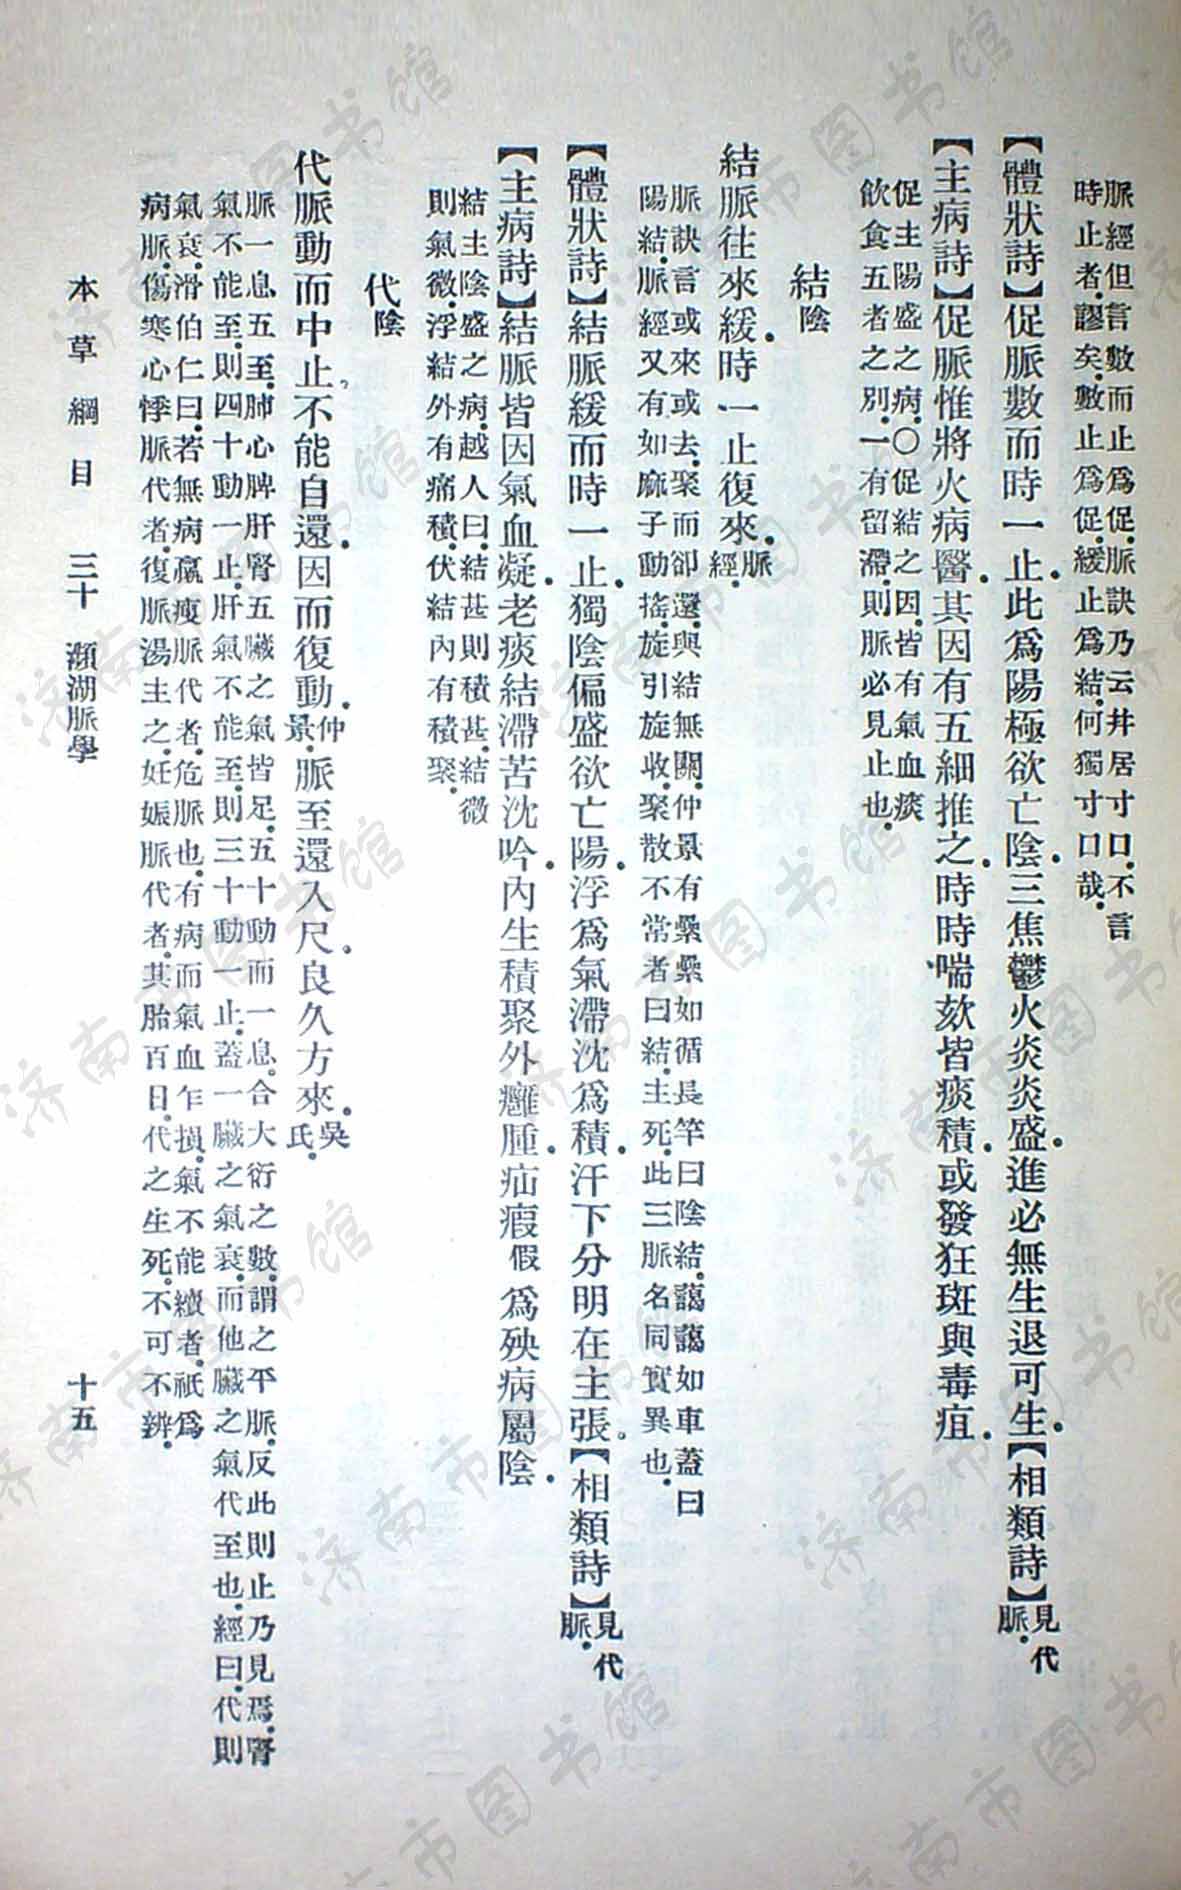 脈經但言數而止爲促.脈訣乃云井居寸口.不言
時止者.謬矣.數止爲促.緩止爲結.何獨寸口哉.
【體狀詩】促脈數而時一止.此爲陽極欲亡陰.三焦鬱火炎炎盛.進必無生退可生.【相類詩】見代脈.
【主病詩】促脈惟將火病醫.其因有五細推之.時時喘欬皆痰積.或發狂斑與毒疽.
促主陽盛之病.〇促結之因.皆有氣血痰
飲食五者之別.一有留滯.則脈必見止也.
結陰
結脈往來緩.時一止復來.脈經.
脈訣言或來或去.聚而卻還.與結無關.仲景有纍纍如循長竿曰陰結.藹藹如車蓋曰
陽結.脈經又有如麻子動搖.旋引旋收.聚散不常者曰結.主死.此三脈名同實異也.
【體狀詩】結脈緩而時一止.獨陰偏盛欲亡陽.浮爲氣滯沈爲積.汗下分明在主張.【相類詩】見代脈.
【主病詩】結脈皆因氣血凝.老痰結滯苦沈吟.內生積聚外癰腫.疝瘕假爲殃病屬陰.
結主陰盛之病.越人曰.結甚則積甚.結微
則氣微.浮結外有痛積.伏結內有積聚.
代陰
代脈動而中止.不能自還.因而復動.仲景.脈至還入尺.良久方來.吳氏.
脈一息五至.肺心脾肝腎五臟之氣皆足.五十動而一息.合大衍之數.謂之平脈.反此則止乃見焉.腎
氣不能至.則四十動一止.肝氣不能至.則三十動一止.蓋一臟之氣衰.而他臟之氣代至也.經曰.代則
氣衰.滑伯仁曰.若無病羸瘦脈代者.危脈也.有病而氣血乍損.氣不能續者.祇爲
病脈.傷寒心悸脈代者.復脈湯主之.妊娠脈代者.其胎百日.代之生死.不可不辨.
本草綱目 三十 瀕湖脈學 十五
济南市图书馆